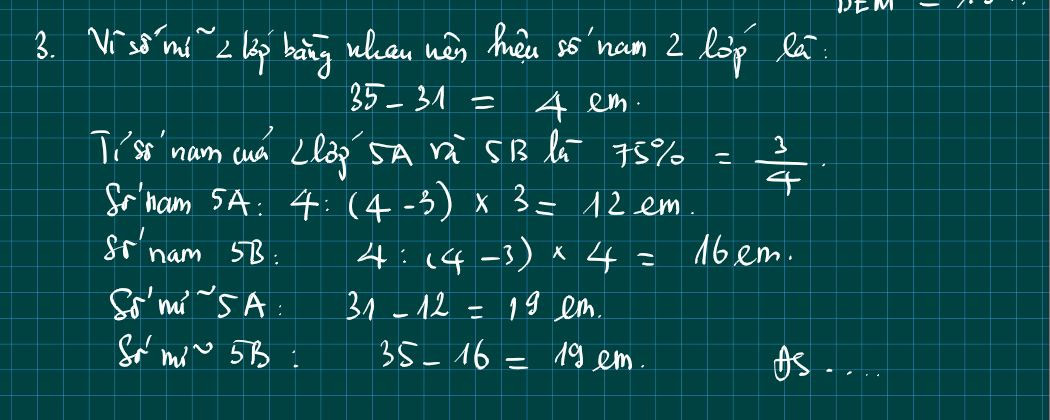 DEM =
3. Vì số nữ 2 lớp bằng nhau nên hiệu số nam 2 lớp là:
35 - 31 = 4 em.
Tỉ số nam của 2 lớp 5A và 5B là 75% = 3/4.
Số nam 5A: 4 : (4 - 3) x 3 = 12 em.
Số nam 5B: 4 : (4 - 3) x 4 = 16 em.
Số nữ 5A: 31 - 12 = 19 em.
Số nữ 5B: 35 - 16 = 19 em. ĐS....